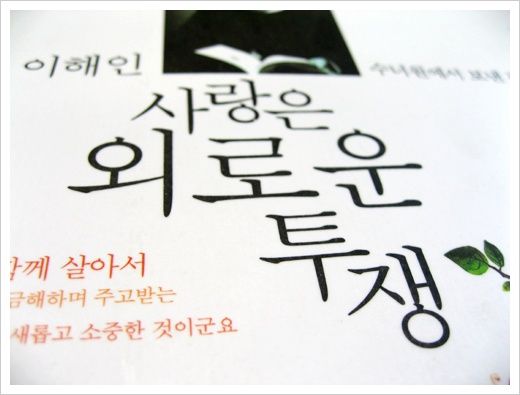 이해인
수녀원에서 보낸
사랑은
외로운
투쟁
함께 살아서
금해하며 주고받는
새롭고 소중한 것이군요